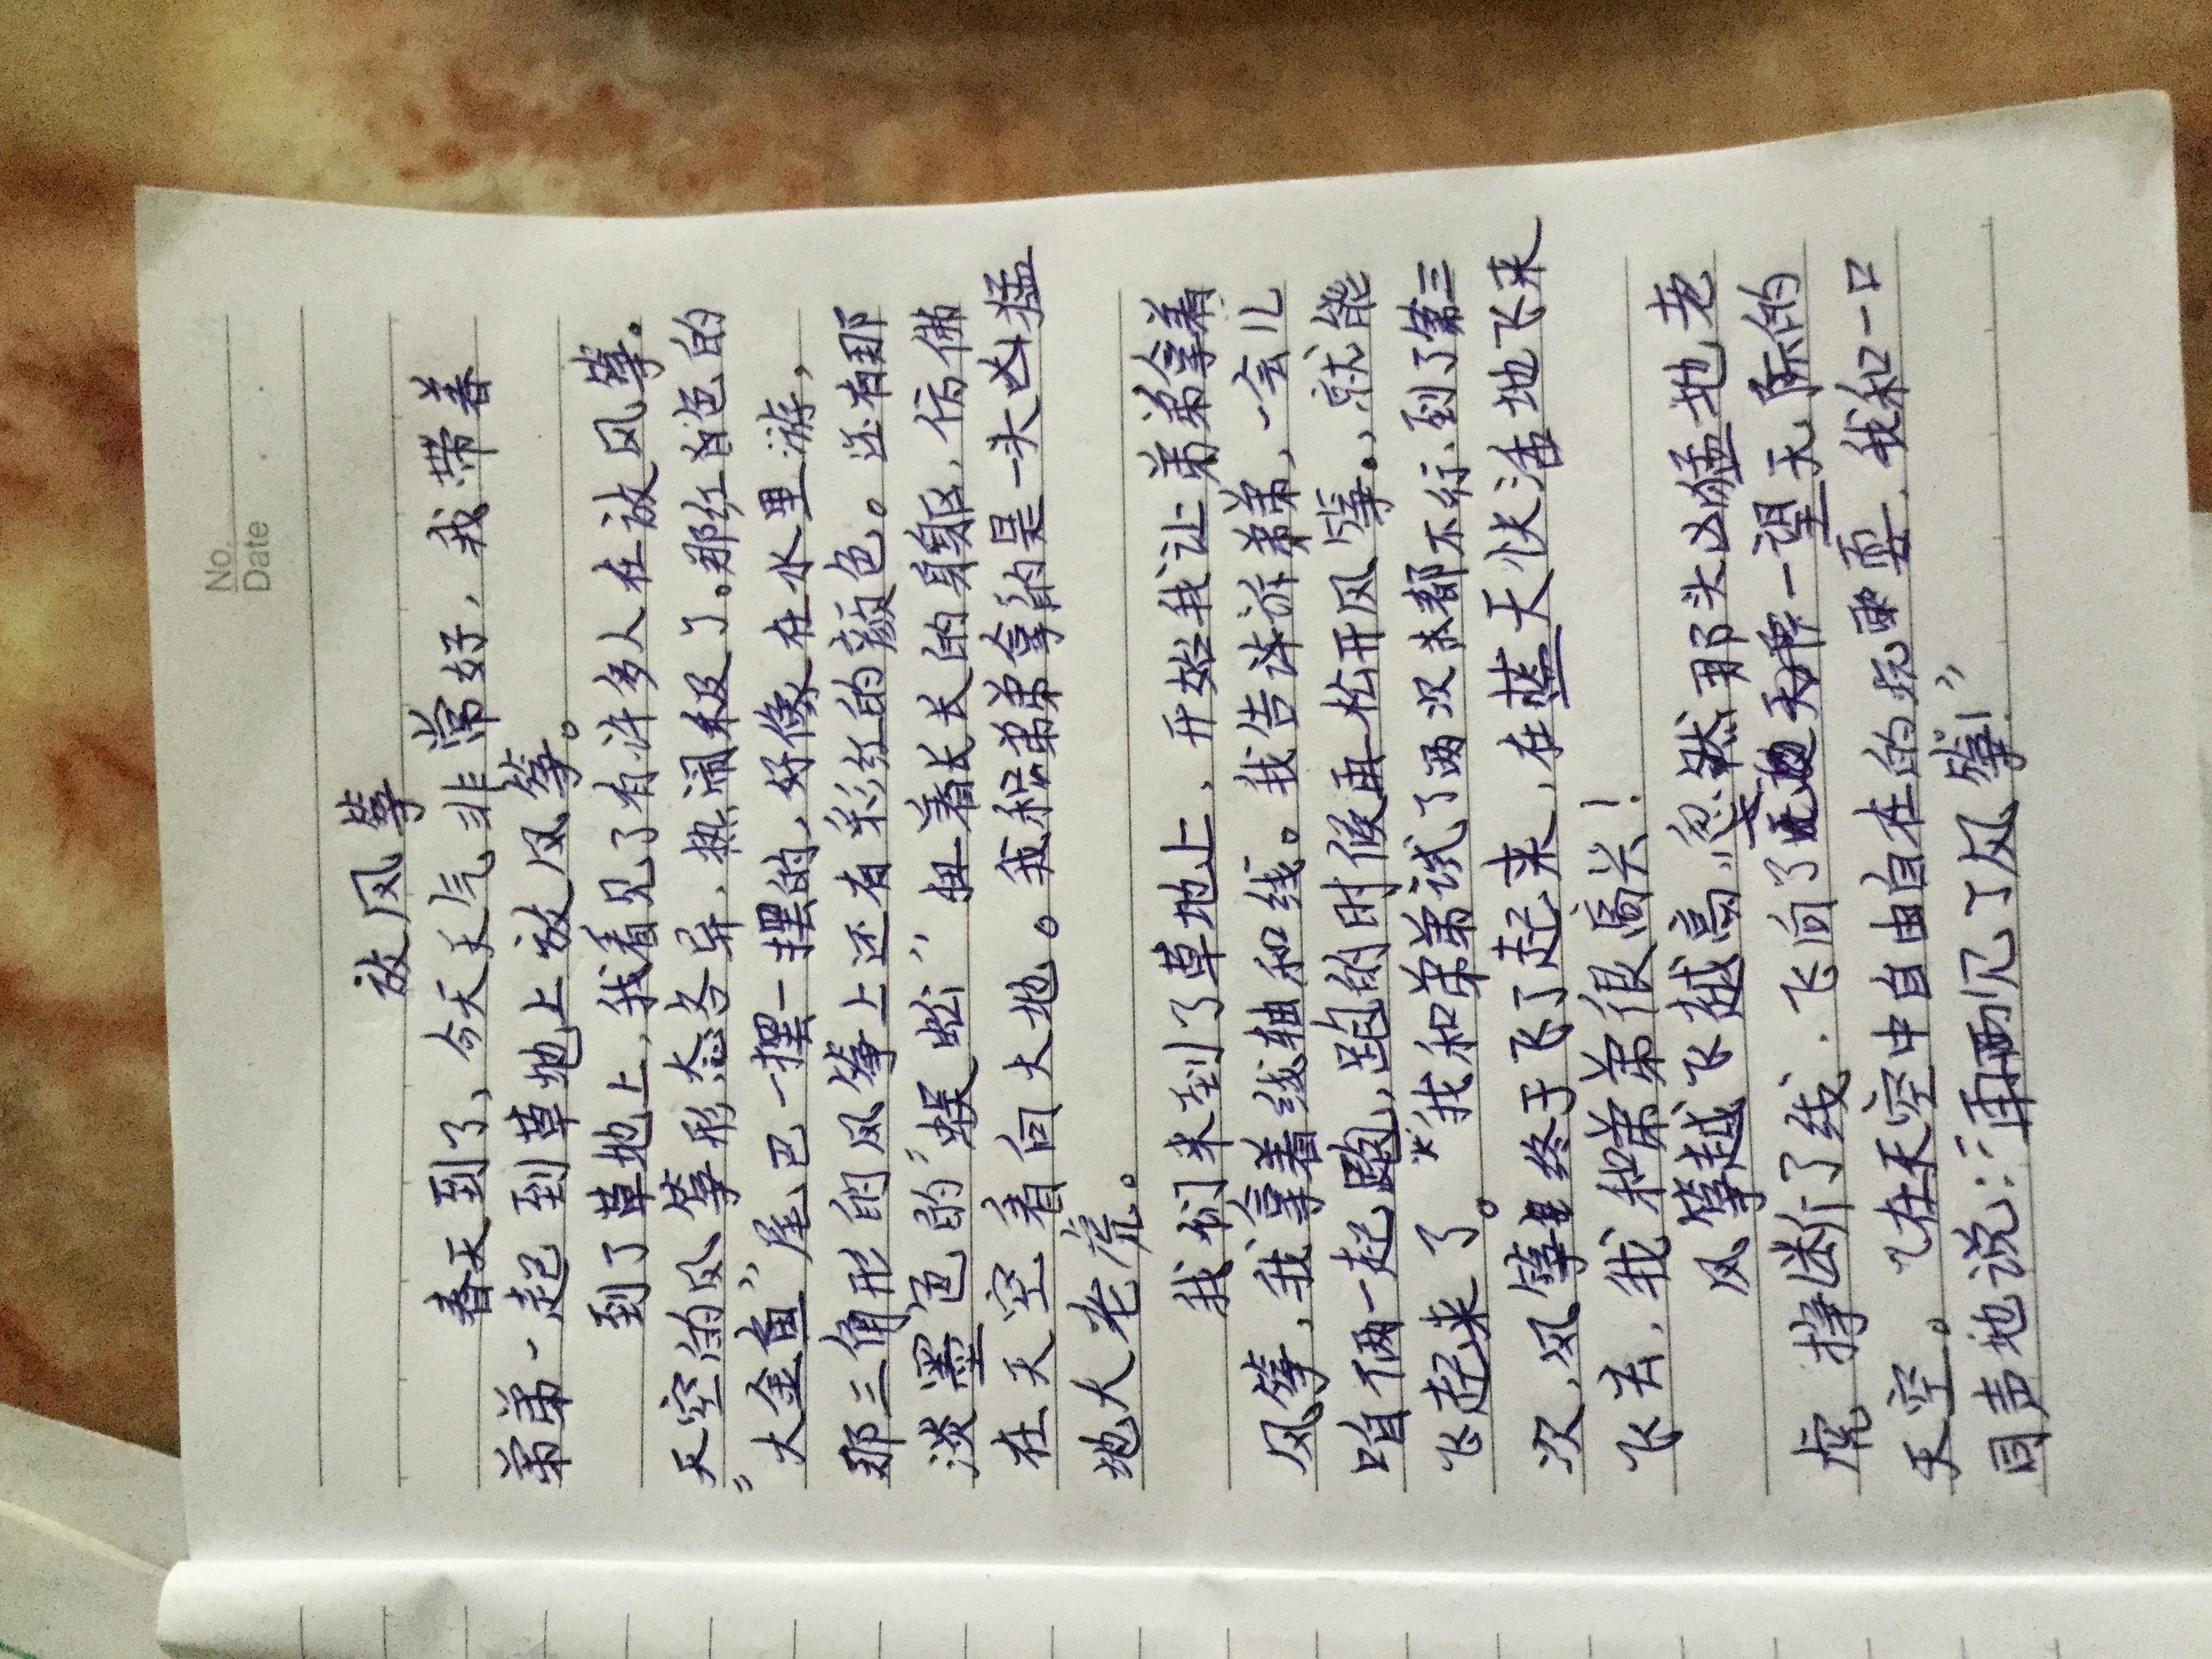 No.
Date
放风筝
春天到了，今天天气非常好，我带着
弟弟一起到草地上放风筝。
到了草地上，我看见了有许多人在放风筝。
天空的风筝形态各异，热闹极了。那红白色的
“大金鱼”尾巴一摆一摆的，好像在水里游，
那三角形的风筝上还有彩红的颜色。还有那
淡墨色的“蜈蚣”扭着长长的身躯，仿佛
在天空看向大地。我和弟弟拿的是一头凶猛
地大老虎。
我们来到了草地上，开始我让弟弟拿着
风筝，我拿着线轴和线。我告诉弟弟，一会儿
咱俩一起跑，跑的时候再松开风筝。，就能
飞起来了。”我和弟弟试了两次都不行，到了第三
次，风筝终于飞了起来，在蓝天快活地飞来
飞去，我和弟弟很高兴！
风筝越飞越高，忽然那头凶猛地老
虎挣断了线．飞向了一望无际的
天空。飞在天空中自由自在的玩耍，我和一口
同声地说：“再见了风筝！”